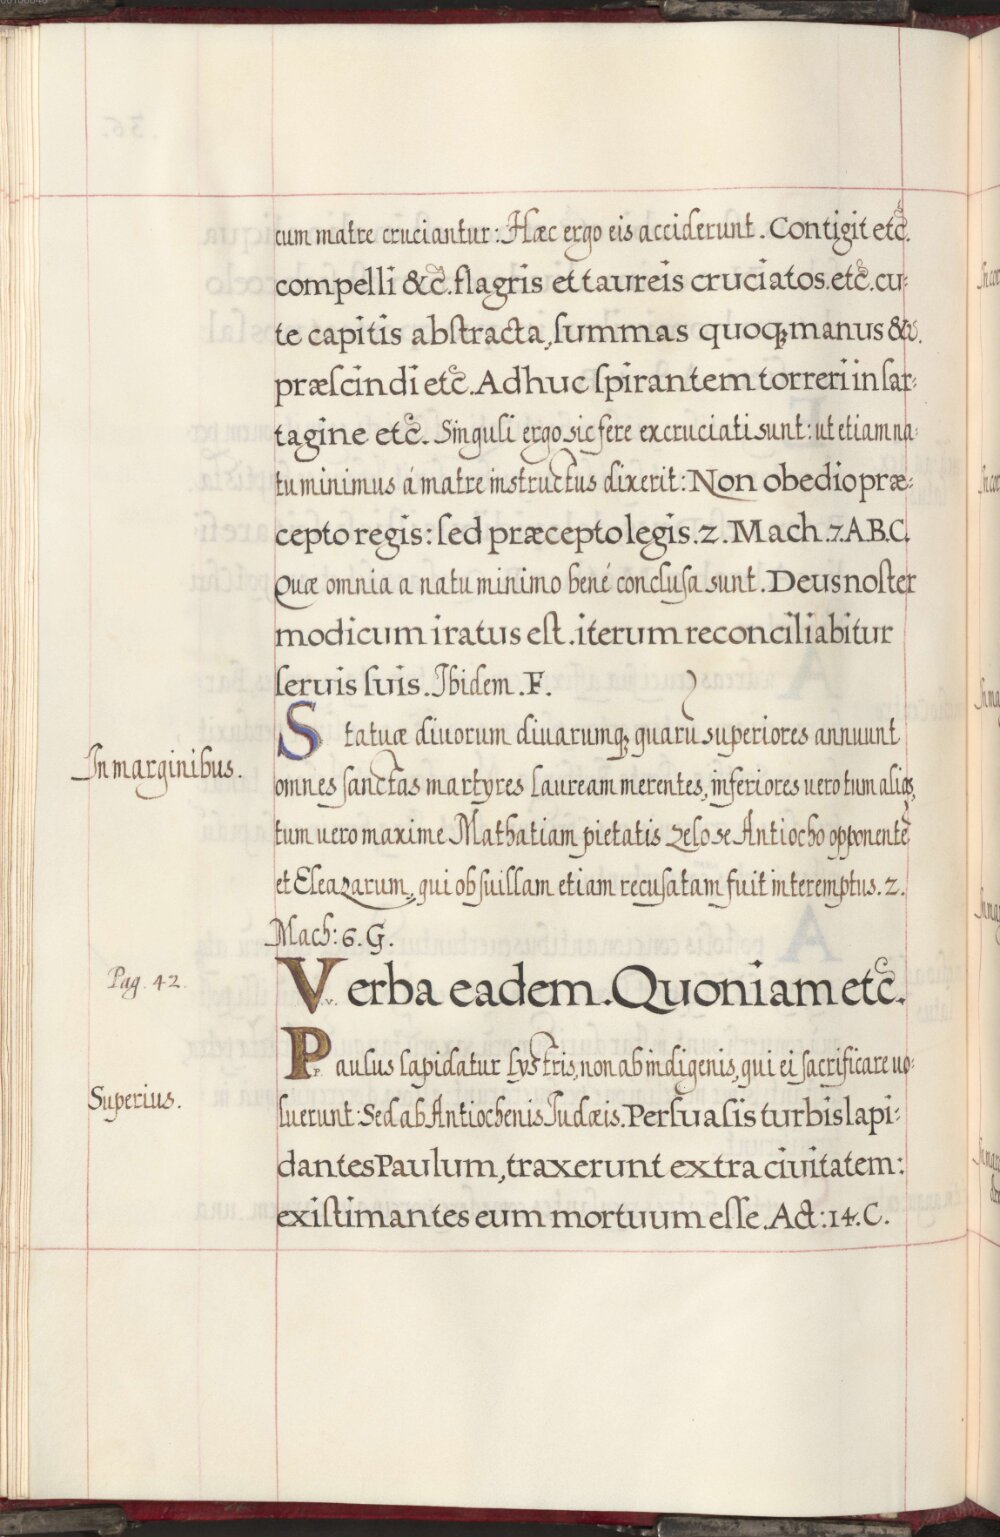 cum matre cruciantur: Hæc ergo eis acciderunt. Contigit etc̃.
compelli &c̃. flagris et taureis cruciatos. etc̃. cu-
te capitis abſtracta, ſummas quoqꝫ manus &c̃.
præſcindi etc̃. Adhuc ſpirantem torreri in ſar-
tagine etc̃. Singuli ergo sic fere excruciati sunt: ut etiam na-
tu minimus á matre instructus dixerit: Non obedio præ-
cepto regis: ſed præcepto legis. 2. Mach. 7. A.B.C.
Quæ omnia a natu minimo bené concluſa sunt. Deus noſter
modicum iratus eſt. iterum reconciliabitur
ſeruis ſuis. Ibidem. F.
Statuæ diuorum diuarumqꝫ quarũ superiores annuunt
In marginibus.
omnes ſanctas martyres lauream merentes, inferiores uero tum alios,
tum uero maxime Mathatiam pietatis zelo se Antiocho opponentẽ
et Eleazarum, qui ob ſuillam etiam recuſatam fuit interemptus. 2.
Mach: 6. G.
Pag. 42.
Verba eadem. Quoniam etc̃.
Paulus lapidatur Lystris, non ab indigenis, qui ei ſacrificare uo-
Superius.
luerunt: Sed ab Antiochenis Iudæis. Perſuaſis turbis lapi-
dantes Paulum, traxerunt extra ciuitatem:
exiſtimantes eum mortuum eſſe. Act: 14. C.